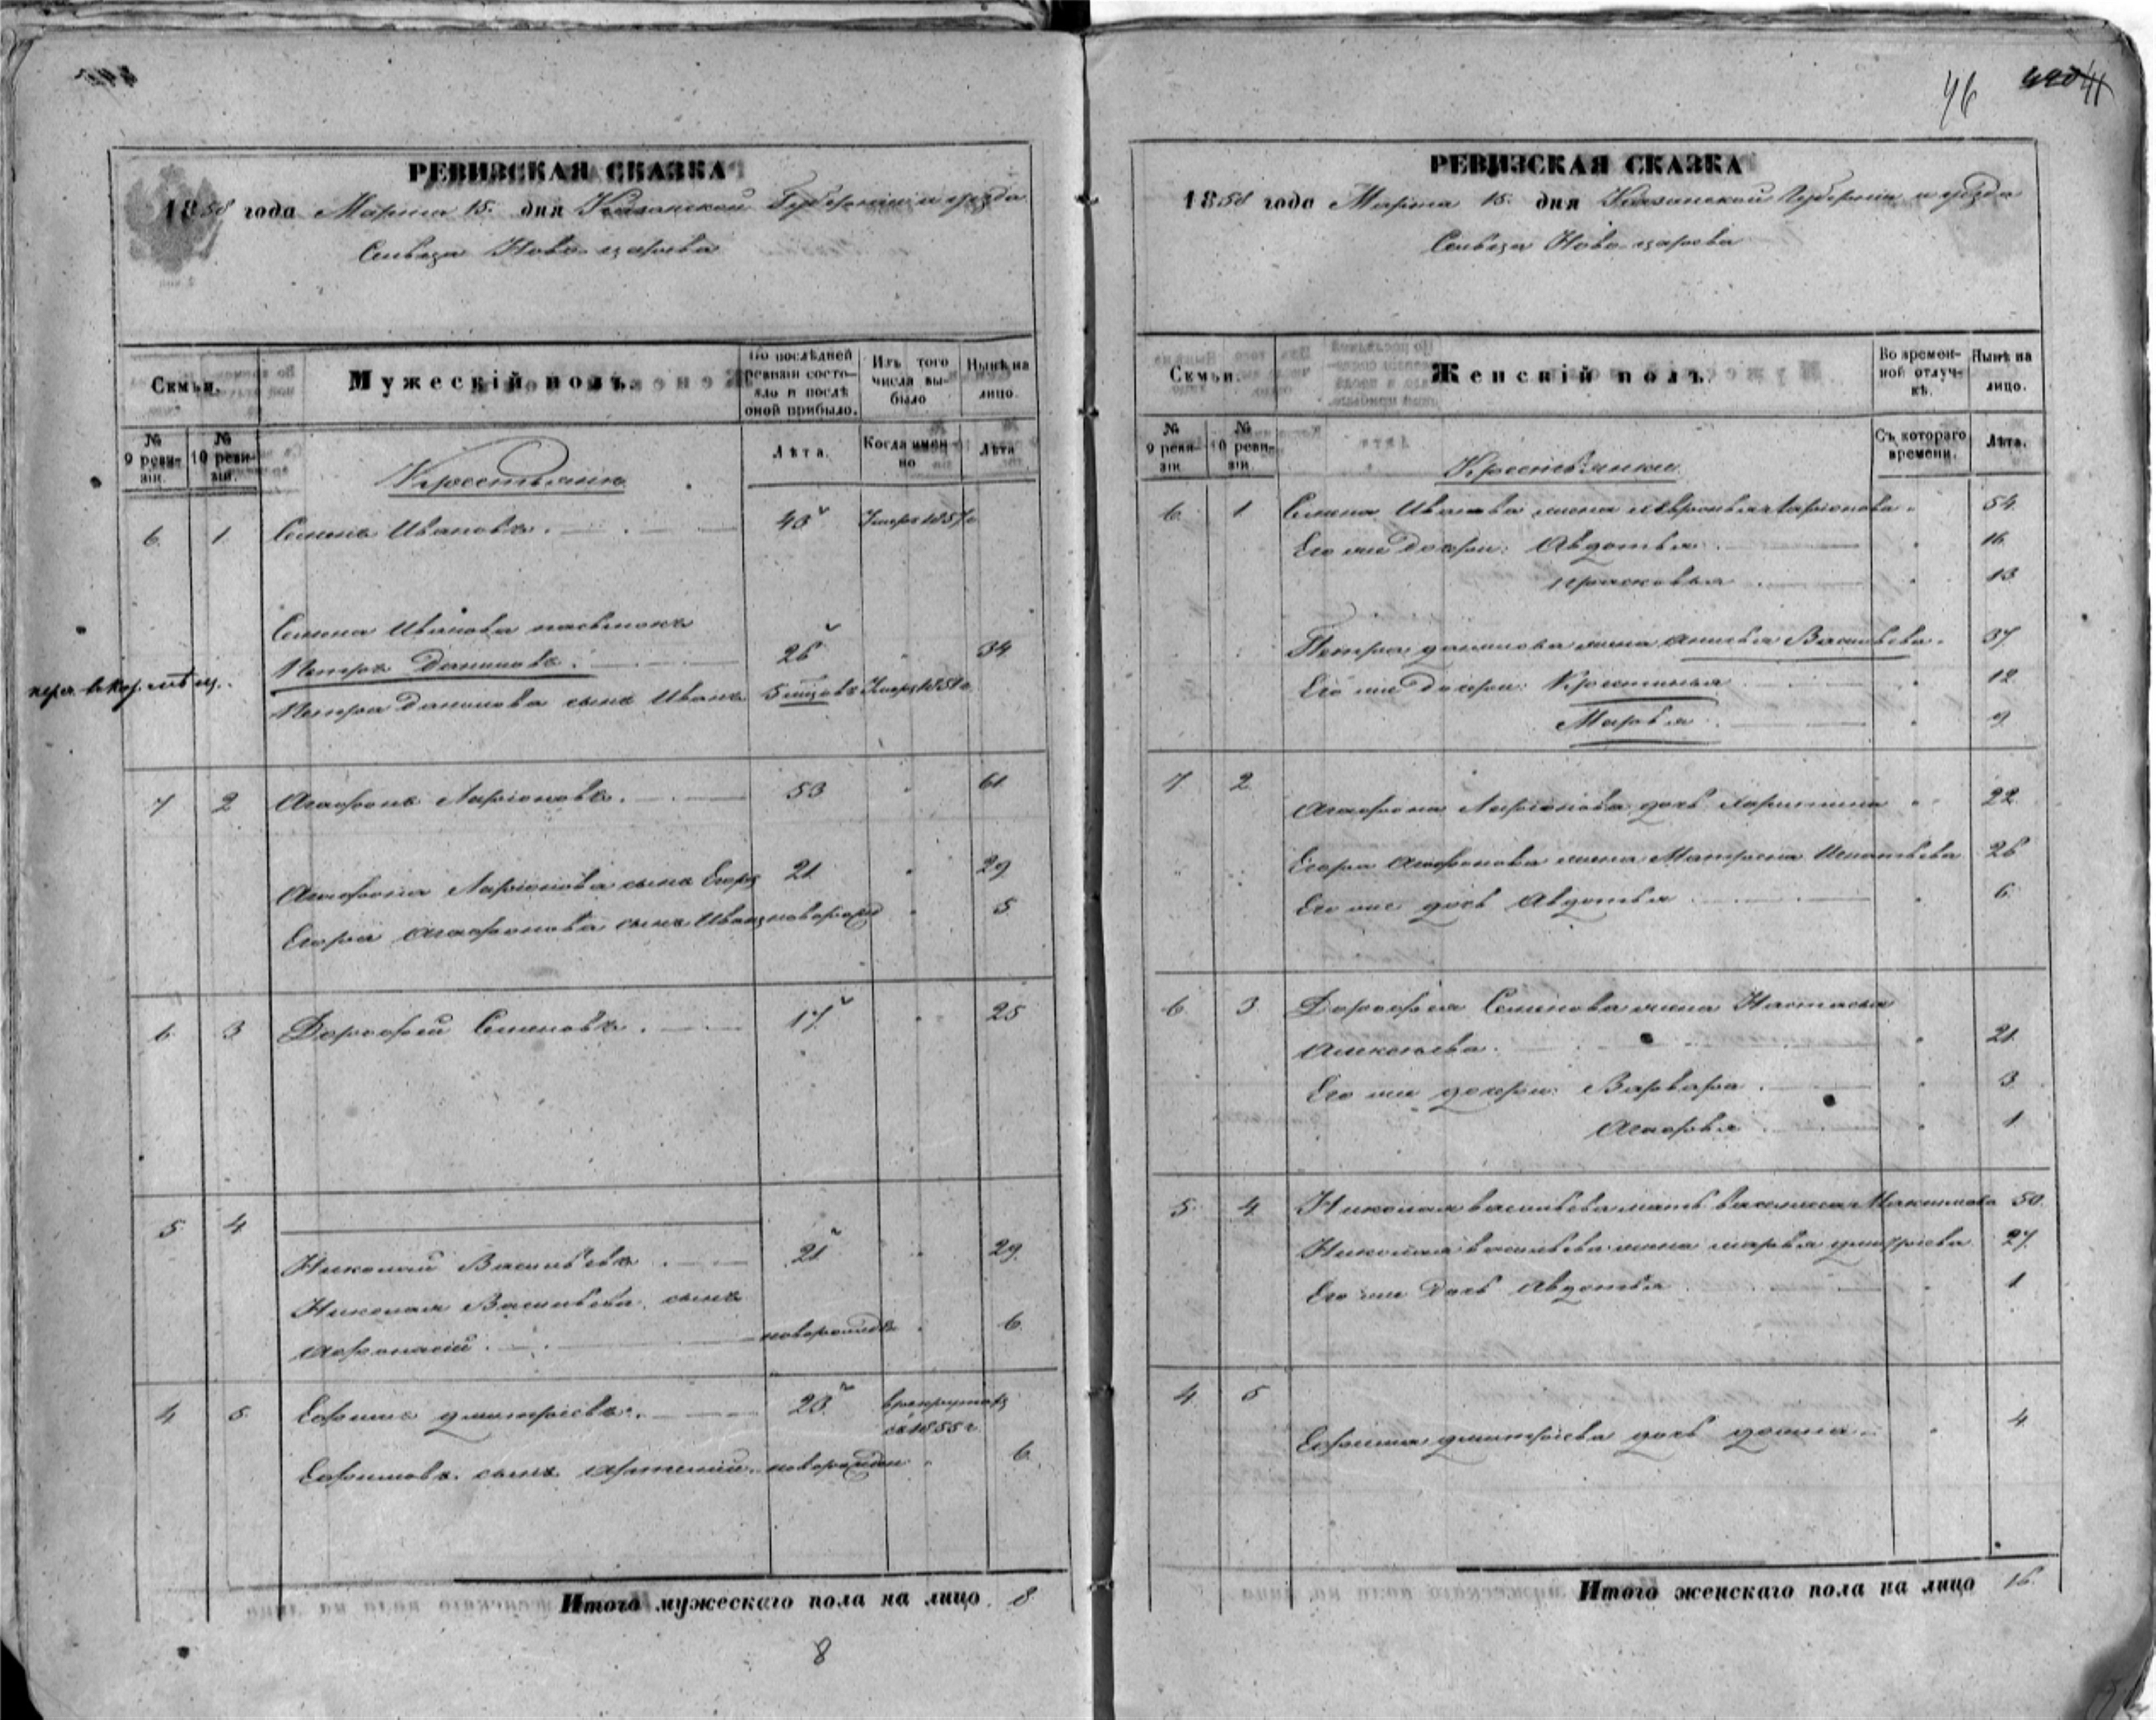 46 41
РЕВИЗСКАЯ СКАЗКА
1858 года Марта 15. дня Казанской Губернии и уѣзда
Сельца Ново-царева
Семьи.
Мужескій полъ.
По послѣдней ревизіи состояло и послѣ оной прибыло.
Изъ того числа выбыло
Нынѣ на лицо.
№ 9 ревизіи.
№ 10 ревизіи.
Крестьяне
Лѣта.
Когда именно
Лѣта
6. 1. Семенъ Ивановъ. 48 Умеръ 1857г
Семена Иванова пасынокъ
Петръ Даниловъ. 26 34
Петра Данилова сынъ Иванъ 5 мѣсяцовъ Умеръ
7 2 Агафонъ Ларіоновъ. 53 61
Агафона Ларіонова сынъ Егоръ 21 29
Егора Агафонова сынъ Иванъ новорожд 5
6. 3 Дорофей Семеновъ. 17 25
5. 4
Николай Васильевъ 21 29.
Николая Васильева сынъ
Афонасій. новорожденъ 6.
4 5. Ефимъ Дмитріевъ. 20. в рекруты
въ 1855 г.
Ефимовъ сынъ Артемій. новорожден 6.
Итого мужескаго пола на лицо 8
8
РЕВИЗСКАЯ СКАЗКА
1858 года Марта 15. дня Казанской Губерніи и уѣзда
Сельца Ново-царева
Семьи.
Женскій полъ.
Во временной отлучкѣ.
Нынѣ на лицо.
№ 9 ревизіи
№ 10 ревизіи
Крестьянки
Съ котораго времени.
Лѣта.
6. 1. Семена Иванова жена Ларіонова 54.
Его же дочери: Авдотья 16.
Прасковья 13
Петра Данилова жена Васильева 37
Его же дочери: Крестинья 12
Марья 9
7 2. Агафона Ларіонова дочь Харитина 22.
Егора Агафонова жена Матрена Игнатьева 26
Его же дочь Авдотья 6.
6. 3 Дорофея Семенова жена Настасья
Алексеева. 21.
Его же дочери: Варвара 3
Агафья 1
5. 4. Николая Васильева мать Василиса Максимова 50.
Николая Васильева жена Марья Дмитріева 27.
Его же дочь Авдотья 1
4 5 Ефима Дмитріева дочь Домна 4
Итого женскаго пола на лицо 16.